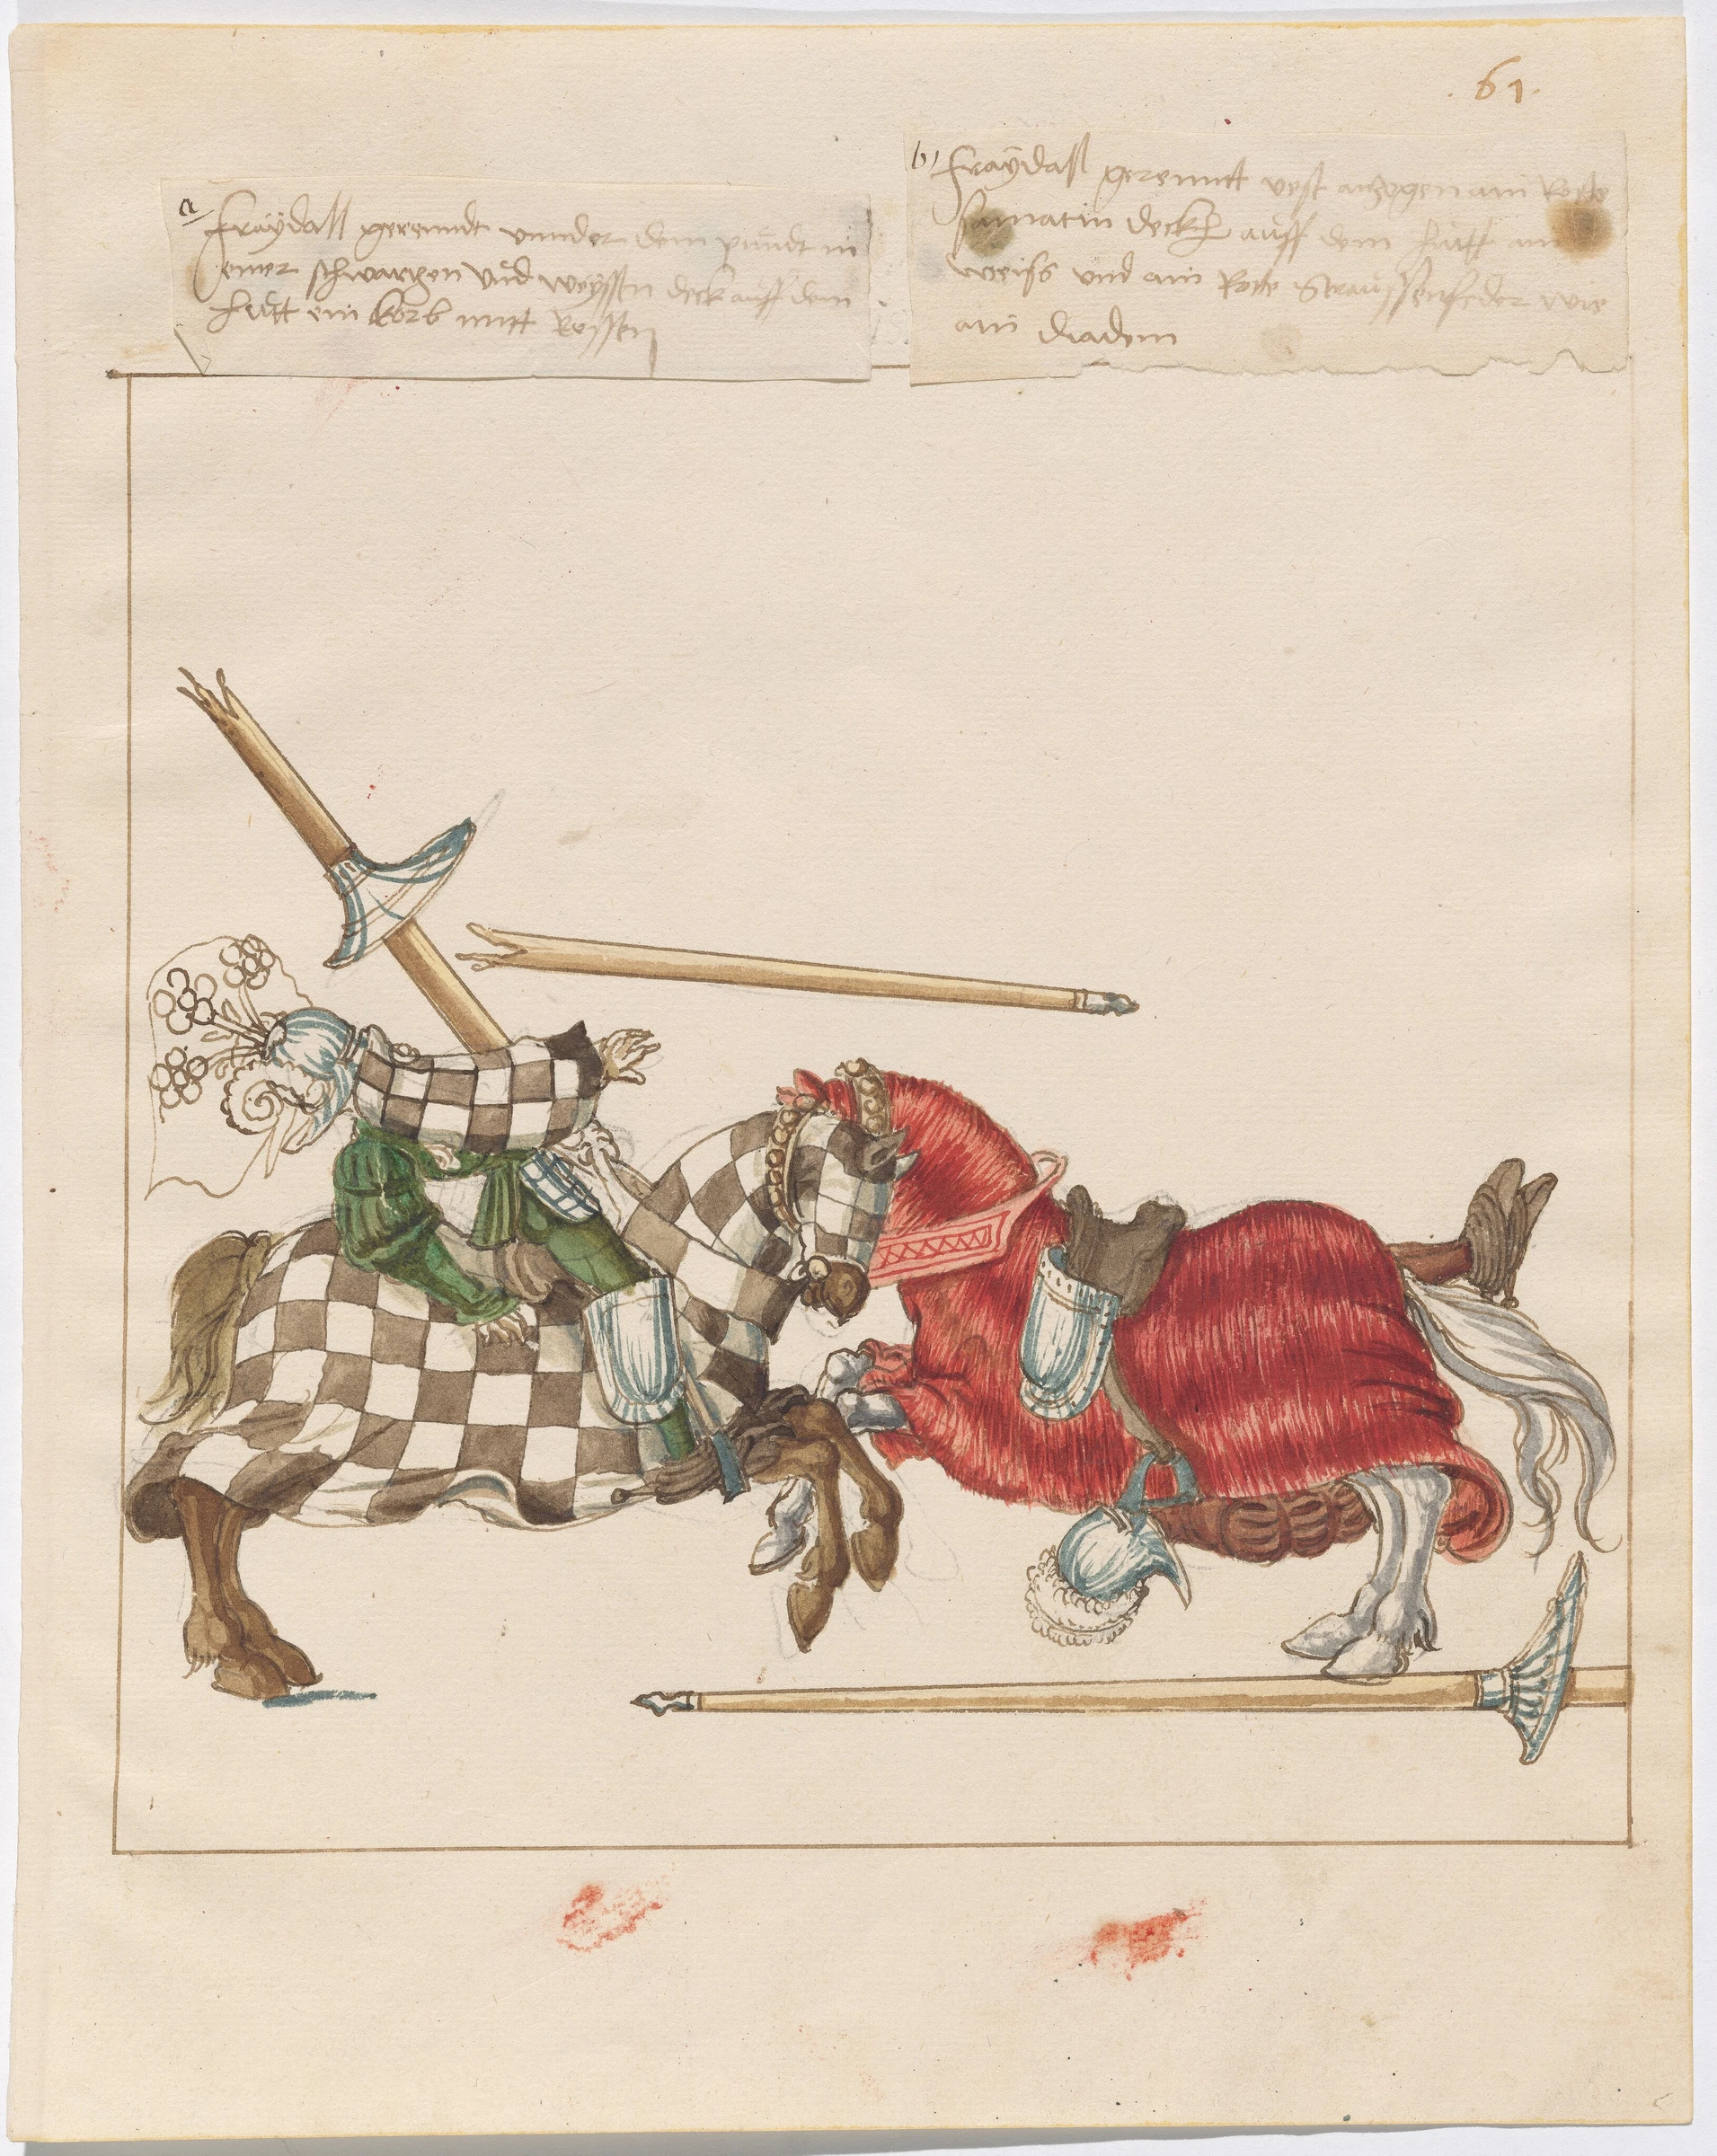 .61.
a, Fraydall gerenndt unnder dem pundt in
einer schwarzen und weyssen deck auff dem
hutt ein korb mitt Rossen
b, Fraydall gerennt vest anzogen ain Rotte
samatin deckh auff dem hutt ain
weiss und ain Rotte Straussenfeder wie
ain diadem